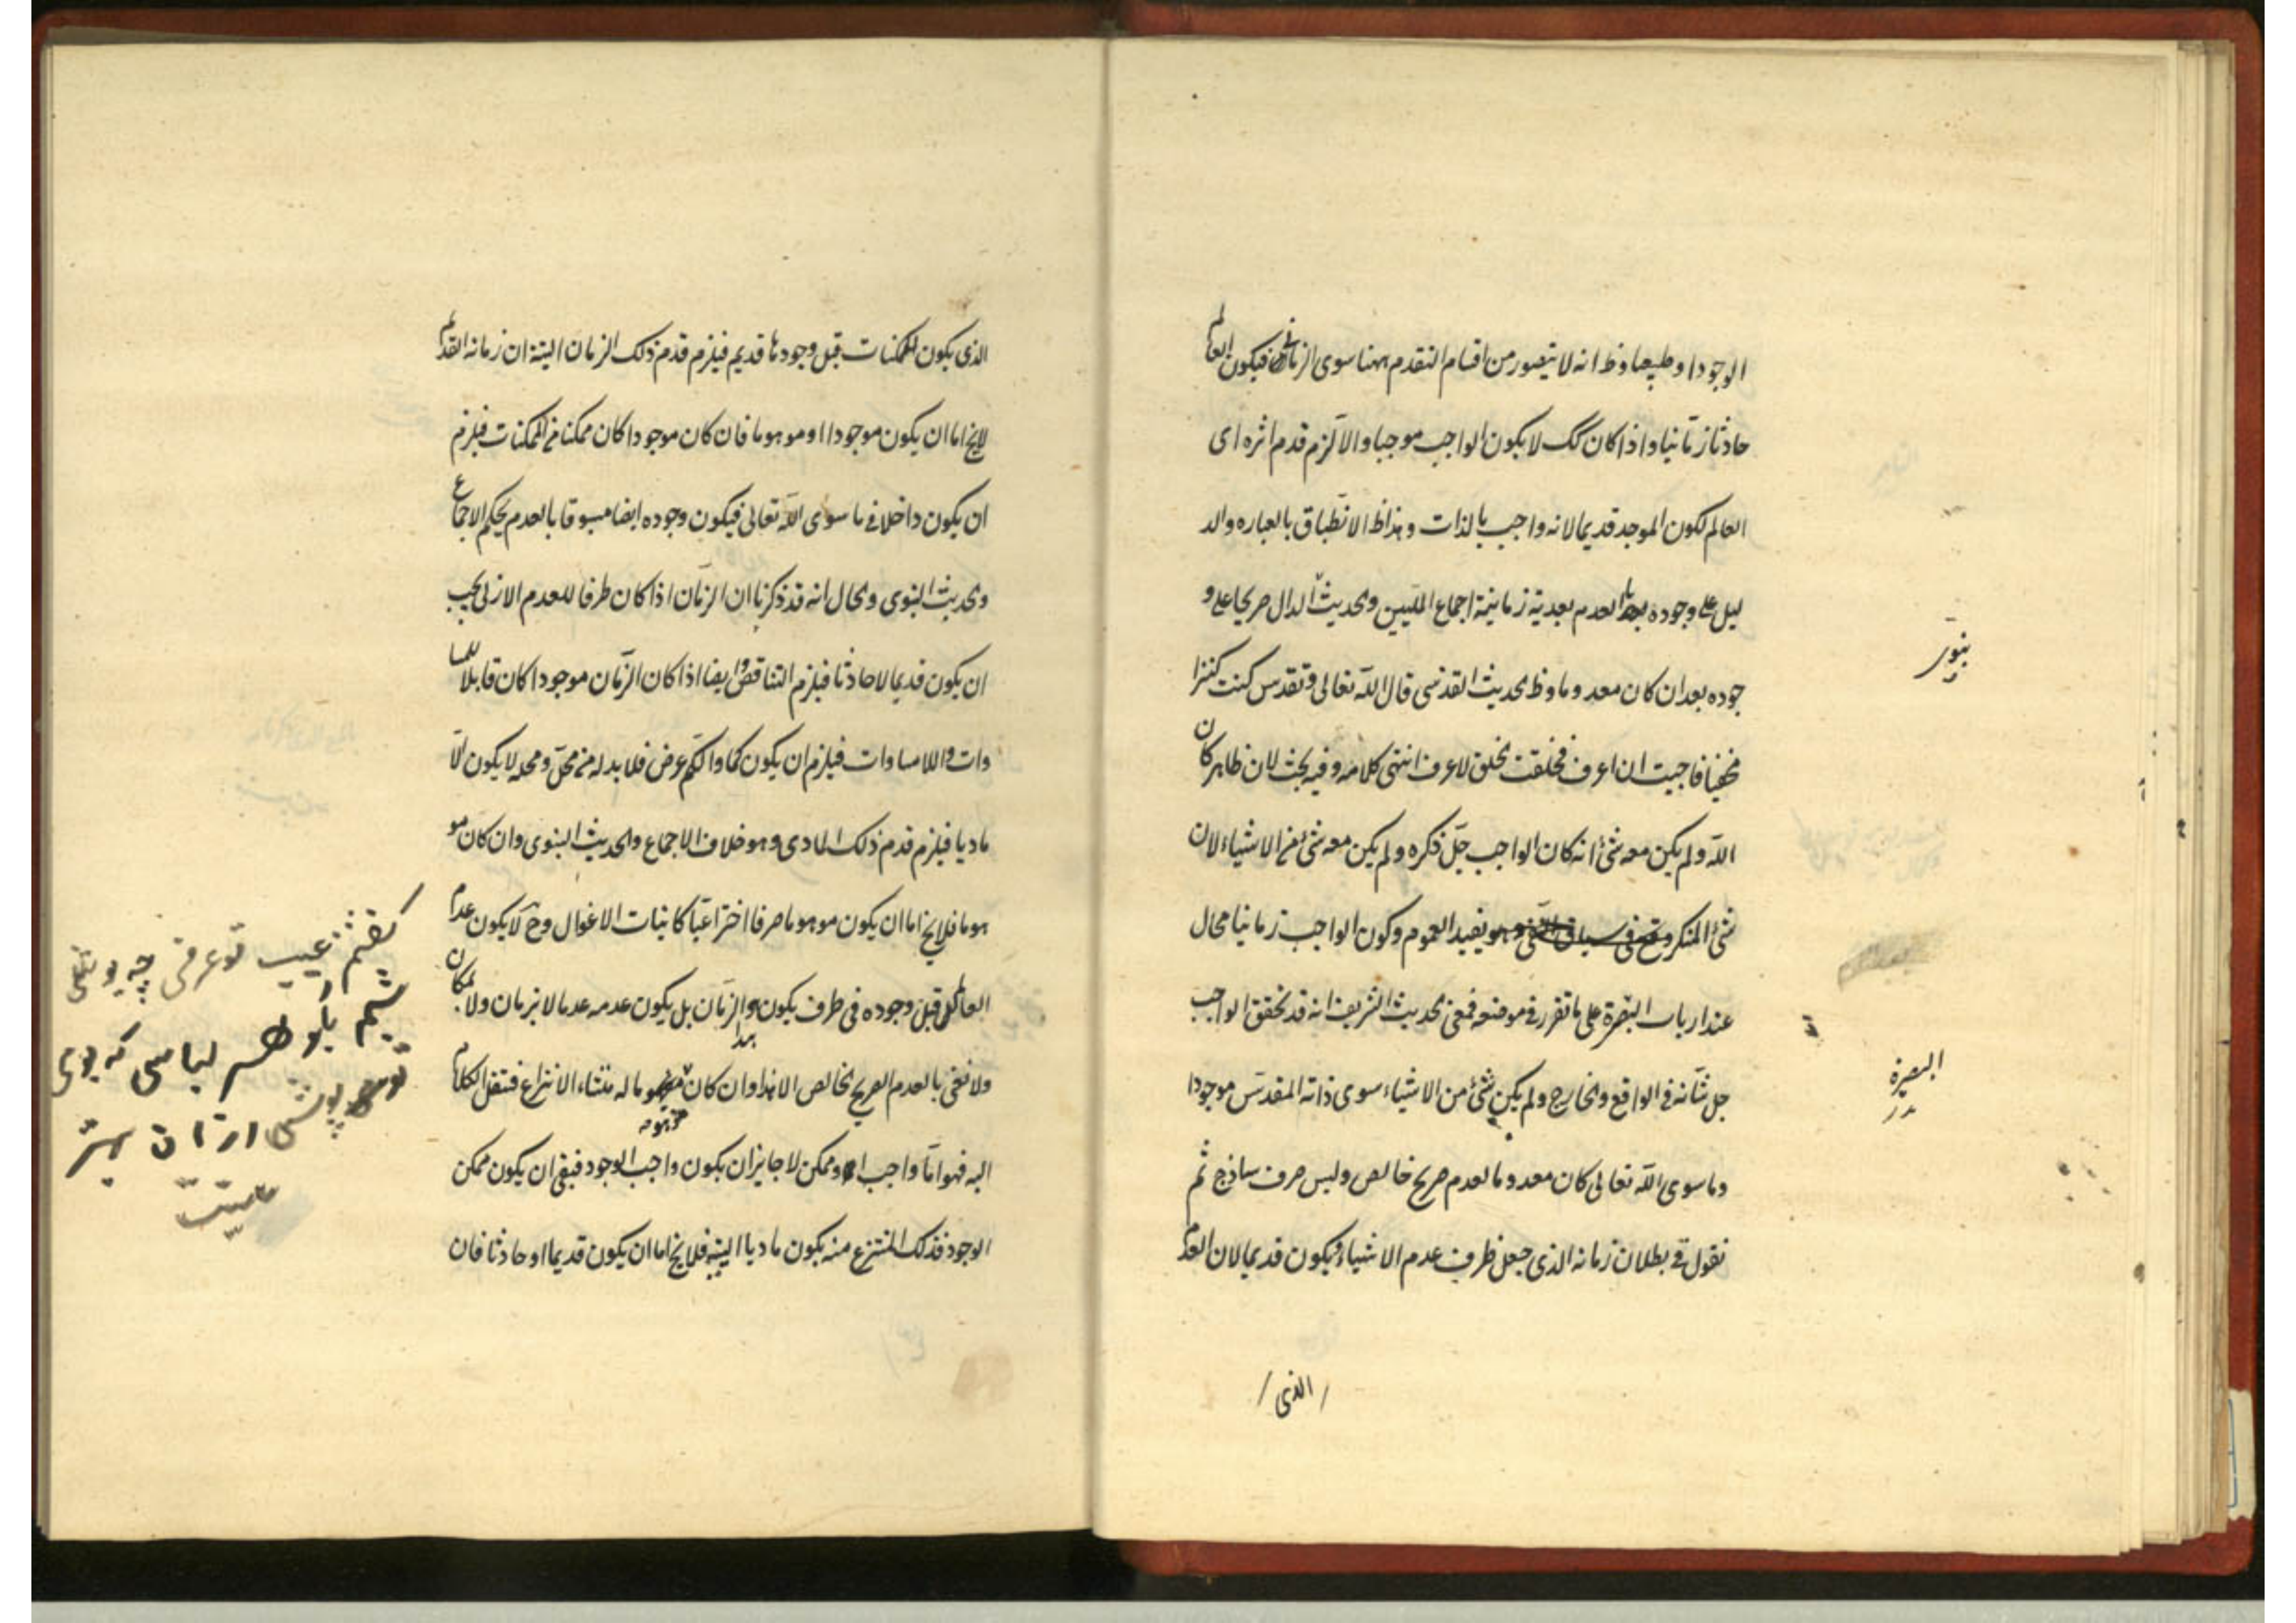 الوجود او طبيعا وظ انه لا يتصور من اقسام التقدم ههنا سوى الزمانى فيكون العالم
حادثا زمانيا واذا كان كك لا يكون الواجب موجبا والا لزم قدم اثره اى
العالم لكون الموجد قديما لانه واجب بالذات وهذا ظ الانطباق بالعباره والد
ليل على وجوده بعد العدم بعدية زمانية اجماع المليين والحديث الدال صريحا على و
جوده بعد ان كان معدوما وظ الحديث القدسى قال الله تعالى وتقدس كنت كنزا
مخفيا فاحببت ان اعرف فخلقت الخلق لاعرف انتهى كلامه وفيه بحث لان ظاهر كان
الله ولم يكن معه شئ انه كان الواجب جل ذكره ولم يكن معه شئ من الاشياء لان
شئ المنكر وقع فى سياق النفى وهو يفيد العموم وكون الواجب زمانيا محال
عند ارباب البصرة على ما تقرر فى موضعه فمعنى الحديث الشريف انه قد تحقق الواجب
جل شانه فى الواقع والخارج ولم يكن شئ من الاشياء سوى ذاته المقدس موجودا
وما سوى الله تعالى كان معدوما لعدم صريح خالص وليس صرف ساذج ثم
نقول فى بطلان زمانه الذى جعل ظرف عدم الاشياء فيكون قديما لان العدم
نبوى
البصيرة
الذى
الذى يكون للممكنات قبل وجودها قديم فيلزم قدم ذلك الزمان البتة ان زمانه القديم
لايخ اما ان يكون موجودا او موهوما فان كان موجودا كان ممكنا من الممكنات فيلزم
ان يكون داخلا فى ما سوى الله تعالى فيكون وجوده ايضا مسبوقا بالعدم بحكم الاجماع
والحديث النبوى والحال انه قد ذكرنا ان الزمان اذا كان ظرفا للعدم الازلى يجب
ان يكون قديما لا حادثا فيلزم التناقض وايضا اذا كان الزمان موجودا كان قابلا للمسا
وات واللامساوات فيلزم ان يكون كما والكم عرض فلا بد له من محل ومحله لا يكون الا
ماديا فيلزم قدم ذلك المادى وهو خلاف الاجماع والحديث النبوى وان كان مو
هوما فلايخ اما ان يكون موهوما صرفا اختراعيا كانياب الاغوال وح لا يكون عدم
العالم قبل وجوده فى ظرف يكون هو الزمان بل يكون عدمه عدما لا بزمان ولا بمكان
ولا نعنى بالعدم الصريح الخالص الا هذا وان كان موهوما له منشاء الانتزاع فننقل الكلام
اليه فهو اما واجب او ممكن لا جايز ان يكون واجب الوجود فبقى ان يكون ممكن
الوجود فذلك المنتزع منه يكون ماديا البتة فلايخ اما ان يكون قديما او حادثا فان